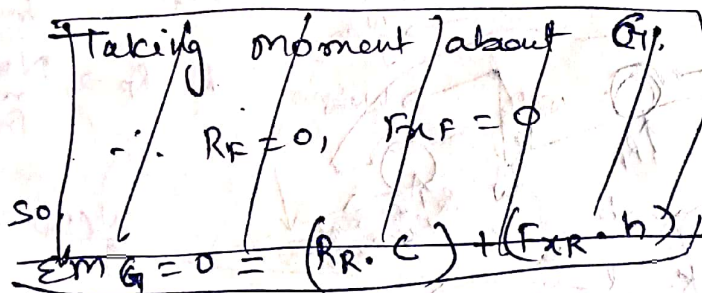 Taking moment about G.
∴ R_F = 0, F_xF = 0
so,
Σm_G = 0 = (R_R . C) + (F_xR . h)